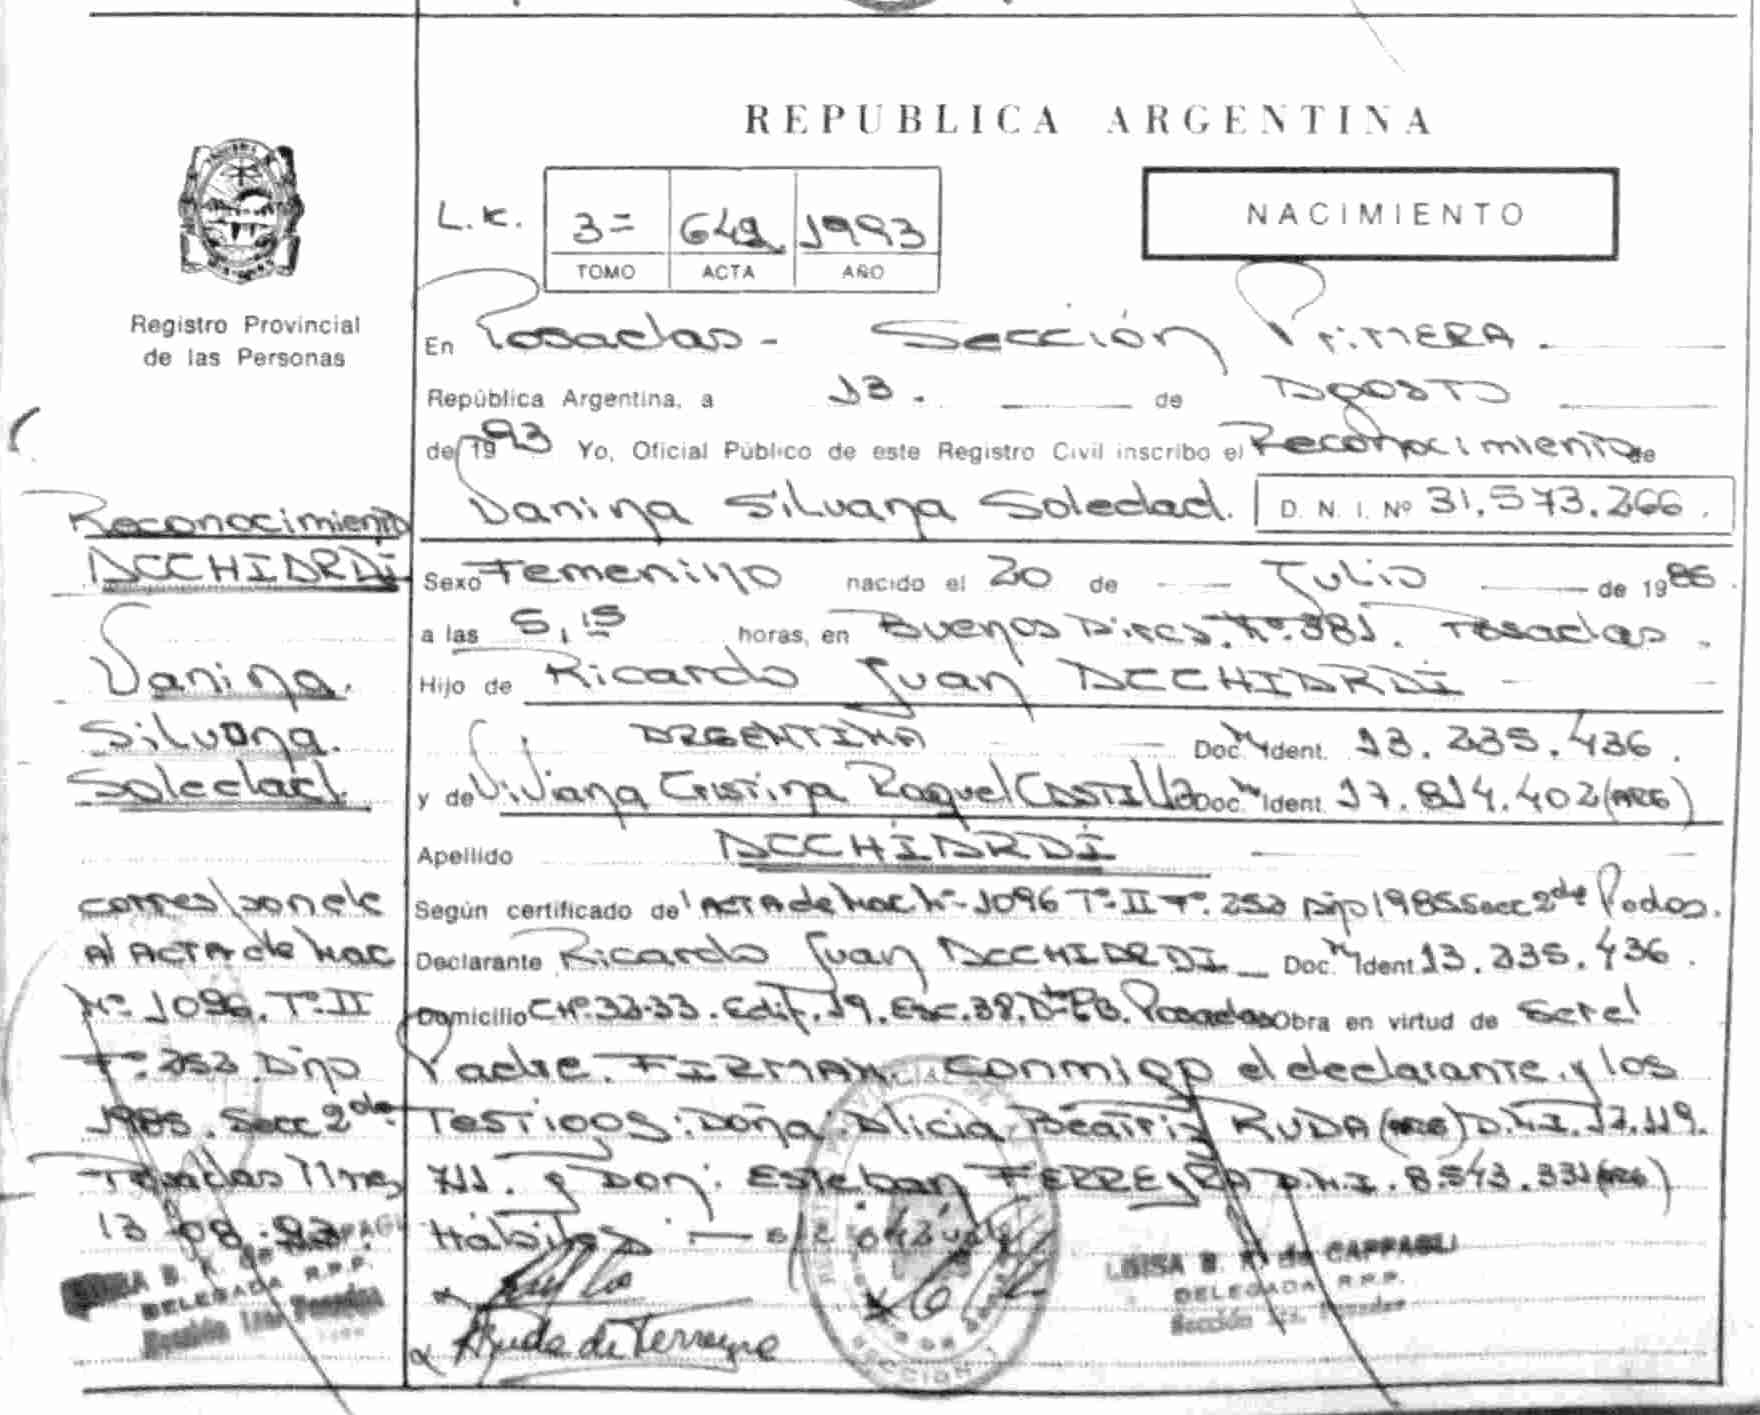 REPUBLICA ARGENTINA
NACIMIENTO
L.K. 3= 1993
TOMO ACTA AÑO
Registro Provincial
de las Personas
En Posadas - Sección Primera.
República Argentina, a 13. de Agosto
de 1993 Yo, Oficial Público de este Registro Civil inscribo el Reconocimiento de
Vanina Silvana Soledad. D. N. I. Nº 31.573.266.
Sexo Femenino nacido el 20 de Julio de 1985.
a las 5,15 horas, en Buenos Aires. Nº 381. Posadas.
Hijo de Ricardo Juan ACCHIARDI
ARGENTINA Doc. Ident. 13.235.436.
y de Viviana Cristina Raquel CASTILLO Doc. Ident. 17.814.402 (ARG)
Apellido ACCHIARDI
Según certificado de ACTA de Nac Nº 1096 Tº II Fº. 252 Año 1985 Secc 2da Podas.
Declarante Ricardo Juan ACCHIARDI Doc. Ident. 13.235.436.
Domicilio CHº. 32-33. Edif. 19. Esc. 38. Dto PB. Posadas Obra en virtud de Ser el
Padre. FIRMAN. conmigo el declarante. y los
Testigos: Doña: Alicia Beatriz RUDA (ARG) D.N.I. 12.119.
711. y Don: Esteban FERREYRA D.N.I. 8.543.331 (ARG)
Hábiles
A Ruda de Ferreyra
LUISA B. K. de CAPPAGLI
DELEGADA R.P.P.
Sección 1ra. Posadas
Reconocimiento
ACCHIARDI
Vanina.
Silvana.
Soledad.
corresponde
Al ACTA de Nac
Nº 1096. Tº II
Fº. 252. Año
1985. Secc 2da
Posadas Mnes
13-08-93
DELEGADA R.P.P.
Sección 1ra Posadas